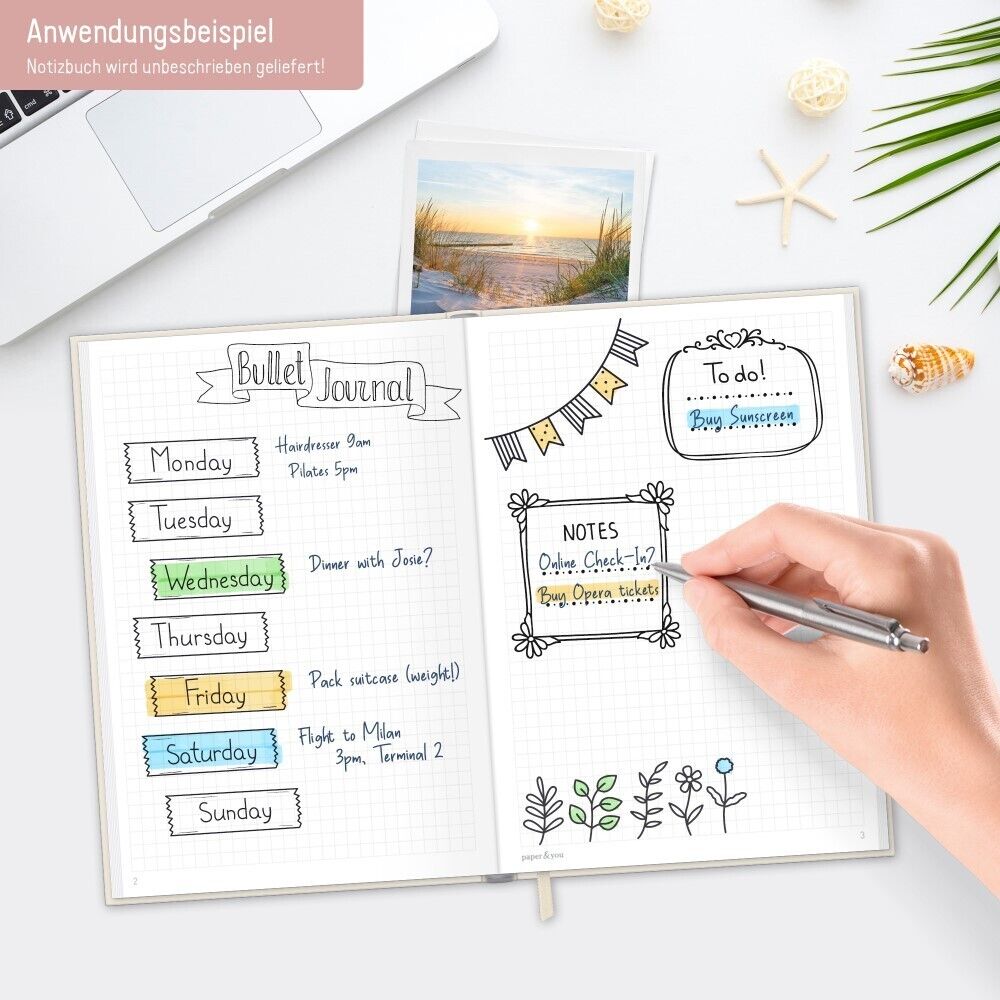 Anwendungsbeispiel
Notizbuch wird unbeschrieben geliefert!
cmd
Bullet
Journal
Monday
Hairdresser 9am
Pilates 5pm
Tuesday
Wednesday
Dinner with Josie?
Thursday
Friday
Pack suitcase (weight!)
Saturday
Flight to Milan
3pm, Terminal 2
Sunday
2
To do!
Buy Sunscreen
NOTES
Online Check-In?
Buy Opera tickets
paper&you
3